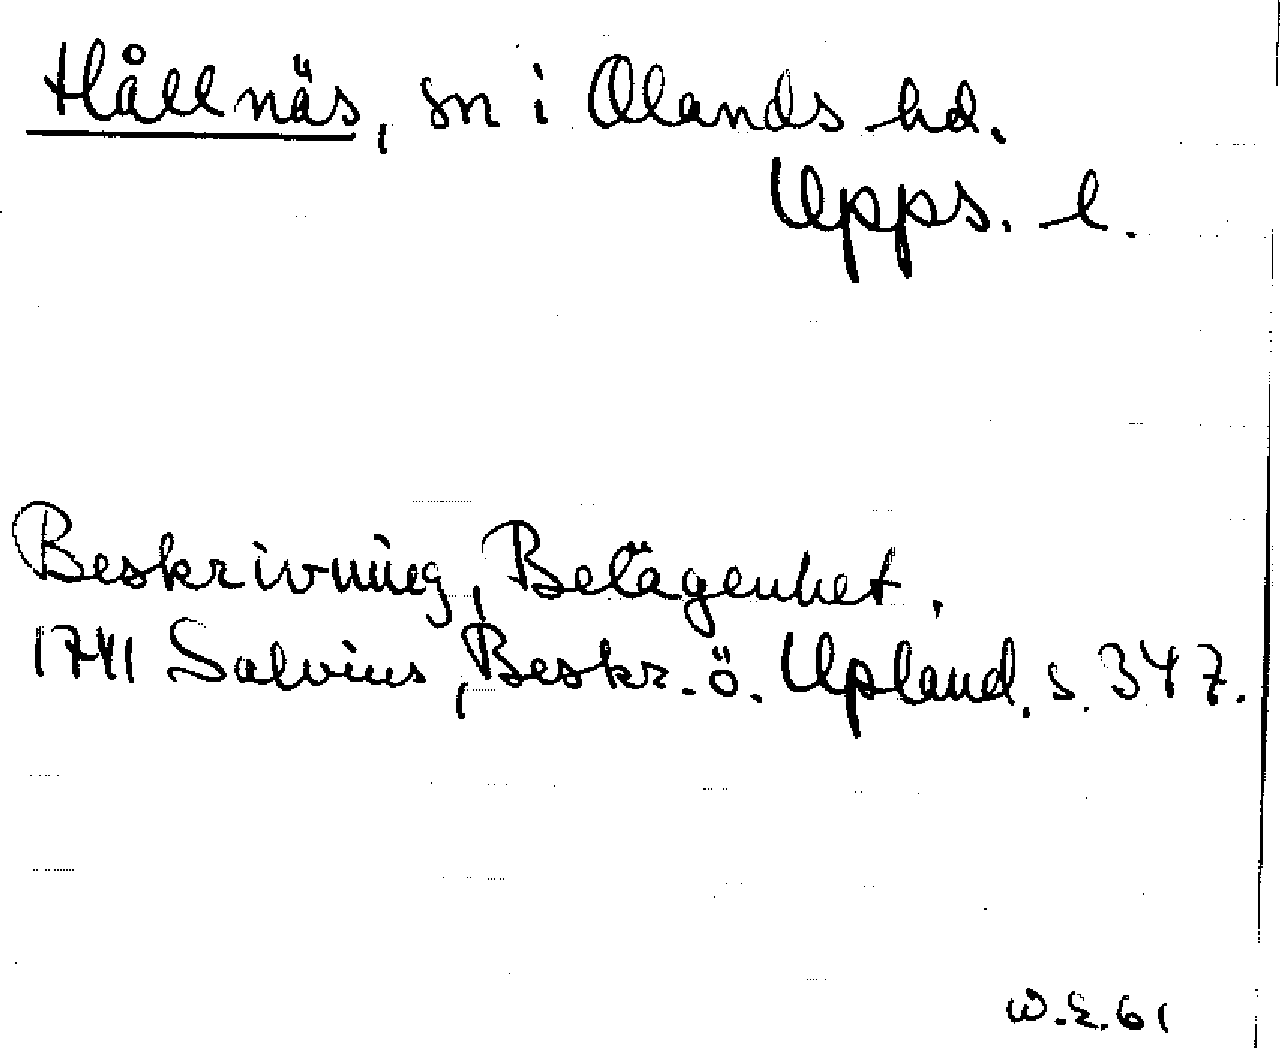 Hållnäs, sn i Olands hd.
Upps. l.
Beskrivning, Belägenhet.
1741 Salvius, Beskr. ö. Upland. s. 347.
W.E.61